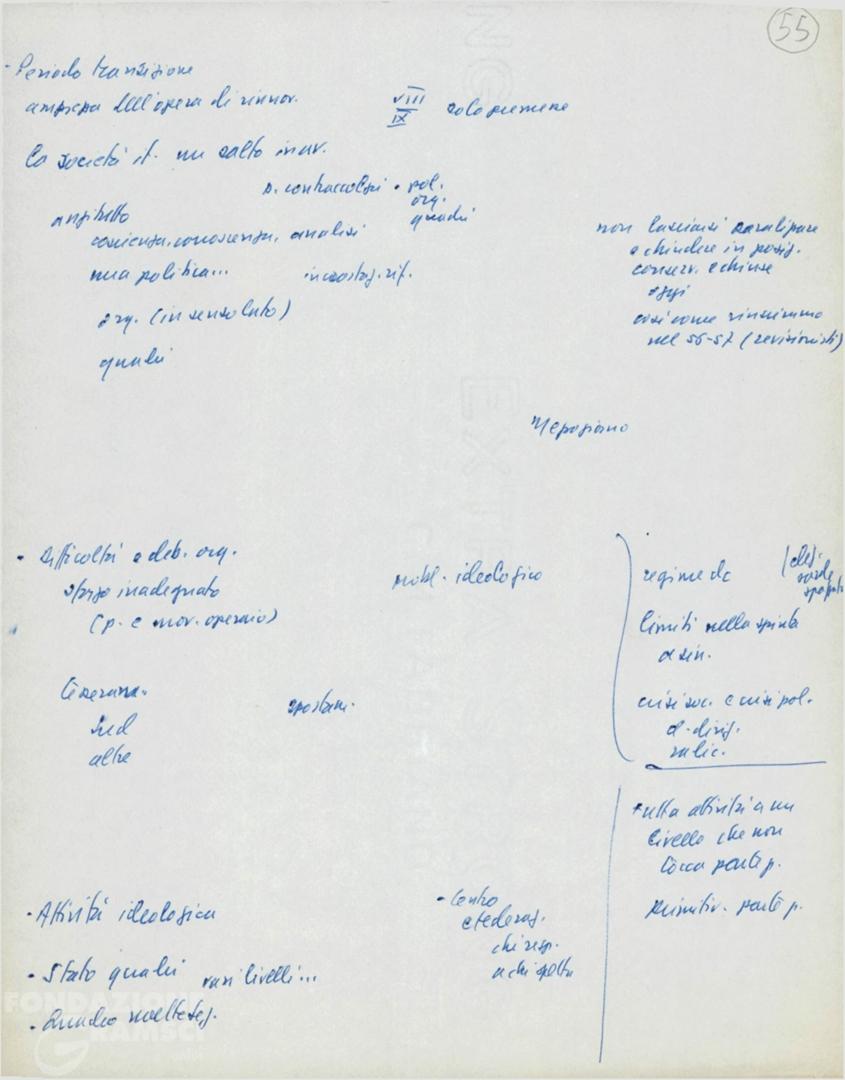 55
- Periodo transizione
ampiezza dell'opera di rinnov.
VIII
IX
solo premesse
la società it. un salto innov.
contraccolpi - pol.
org.
quadri
anzitutto
coscienza, conoscenza, analisi
una politica...
org. (in senso lato)
quadri
non lasciarsi paralizzare
e chiudere in posiz.
conserv. e chiuse
oggi
così come rinscimmo
nel 56-57 (revisionisti)
- Difficoltà e deb. org.
sforzo inadeguato
(p. e mov. operaio)
mobil. ideologico
regime dc
limiti nella spinta
a sin.
crisi soc. e crisi pol.
d. dirig.
radic.
Tesseram.
Sud
altre
spostam.
tutta attività a un
livello che non
tocca parte p.
parte p.
- Attività ideologica
- Centro
e federaz.
chi resp.
a chi spetta
- Stato quadri vari livelli...
FONDAZIONE
GRAMSCI